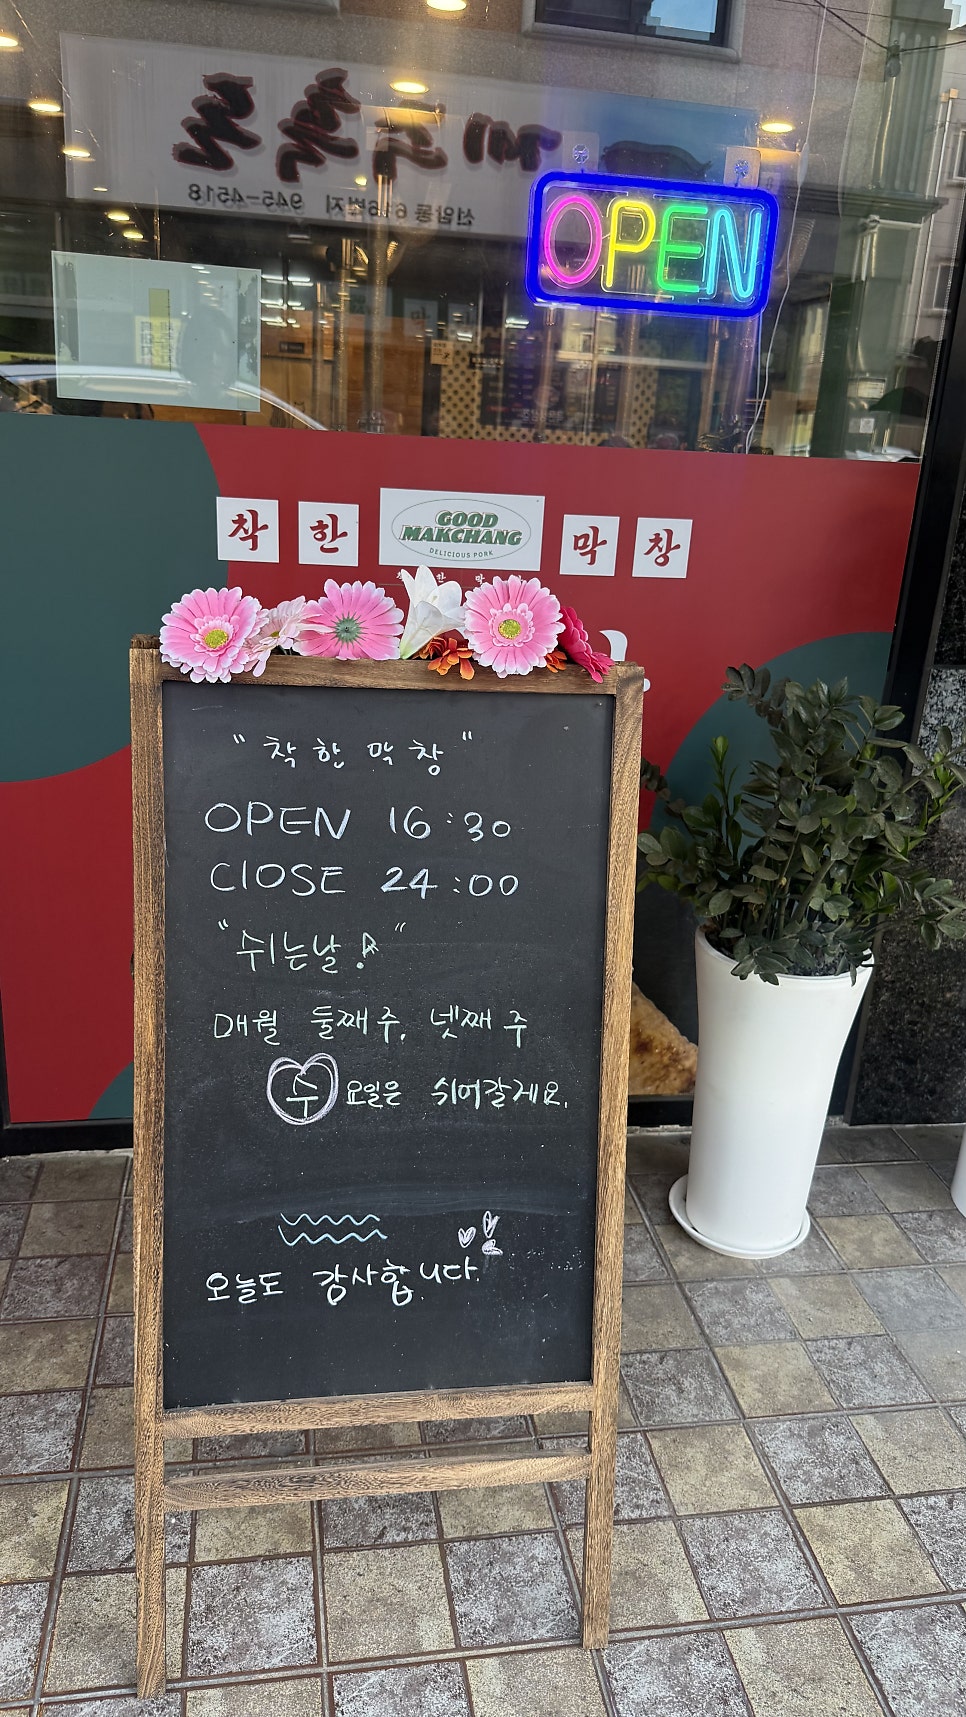 신암동 616번지 945-4518
OPEN
착한 막창
GOOD
MAKCHANG
DELICIOUS PORK
"착한막창"
OPEN 16:30
ClOSE 24:00
"쉬는날!"
매월 둘째주, 넷째 주
수요일은 쉬어갈게요.
오늘도 감사합니다.